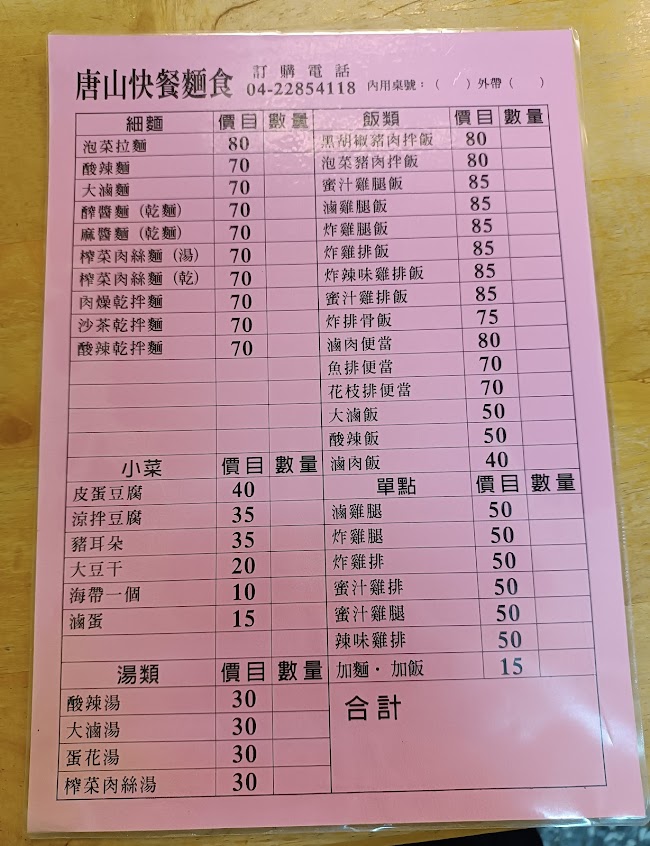 唐山快餐麵食 訂購電話 04-22854118 內用桌號：（ ）外帶（ ）
細麵 價目 數量
泡菜拉麵 80
酸辣麵 70
大滷麵 70
醡醬麵（乾麵） 70
麻醬麵（乾麵） 70
榨菜肉絲麵（湯） 70
榨菜肉絲麵（乾） 70
肉燥乾拌麵 70
沙茶乾拌麵 70
酸辣乾拌麵 70
小菜 價目 數量
皮蛋豆腐 40
涼拌豆腐 35
豬耳朵 35
大豆干 20
海帶一個 10
滷蛋 15
湯類 價目 數量
酸辣湯 30
大滷湯 30
蛋花湯 30
榨菜肉絲湯 30
飯類 價目 數量
黑胡椒豬肉拌飯 80
泡菜豬肉拌飯 80
蜜汁雞腿飯 85
滷雞腿飯 85
炸雞腿飯 85
炸雞排飯 85
炸辣味雞排飯 85
蜜汁雞排飯 85
炸排骨飯 75
滷肉便當 80
魚排便當 70
花枝排便當 70
大滷飯 50
酸辣飯 50
滷肉飯 40
單點 價目 數量
滷雞腿 50
炸雞腿 50
炸雞排 50
蜜汁雞排 50
蜜汁雞腿 50
辣味雞排 50
加麵・加飯 15
合計